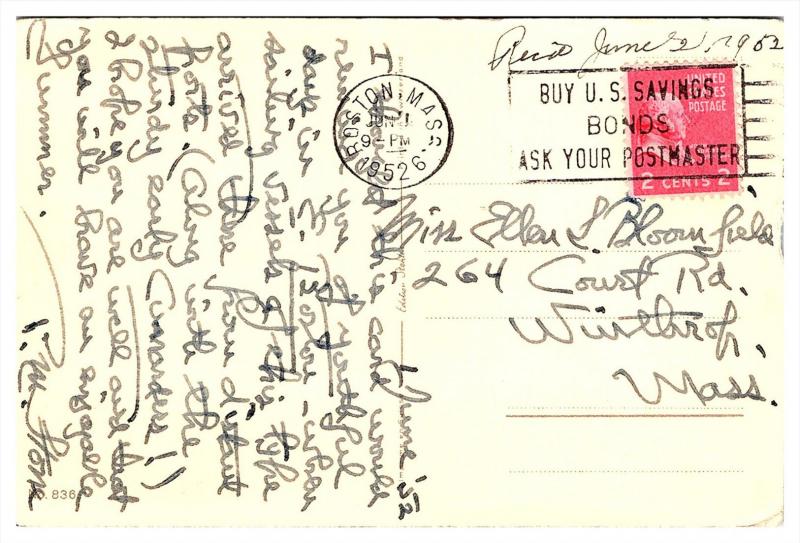 Rec'd June 2, 1952
BOSTON, MASS.
JUN 1
9-PM
1952
6
BUY U. S. SAVINGS
BONDS
ASK YOUR POSTMASTER
UNITED
STATES
POSTAGE
2 CENTS 2
Miss Ellen L. Bloomfield
264 Court Rd,
Winthrop,
Mass.
1 June '52
I this card would
you of youthful
days in E. Boston - when
sailing vessels of this type
arrived there from distant
ports. (Along with the
sturdy early Cunarders!)
I hope you are well and that
you will have an enjoyable
Summer.
No. 836